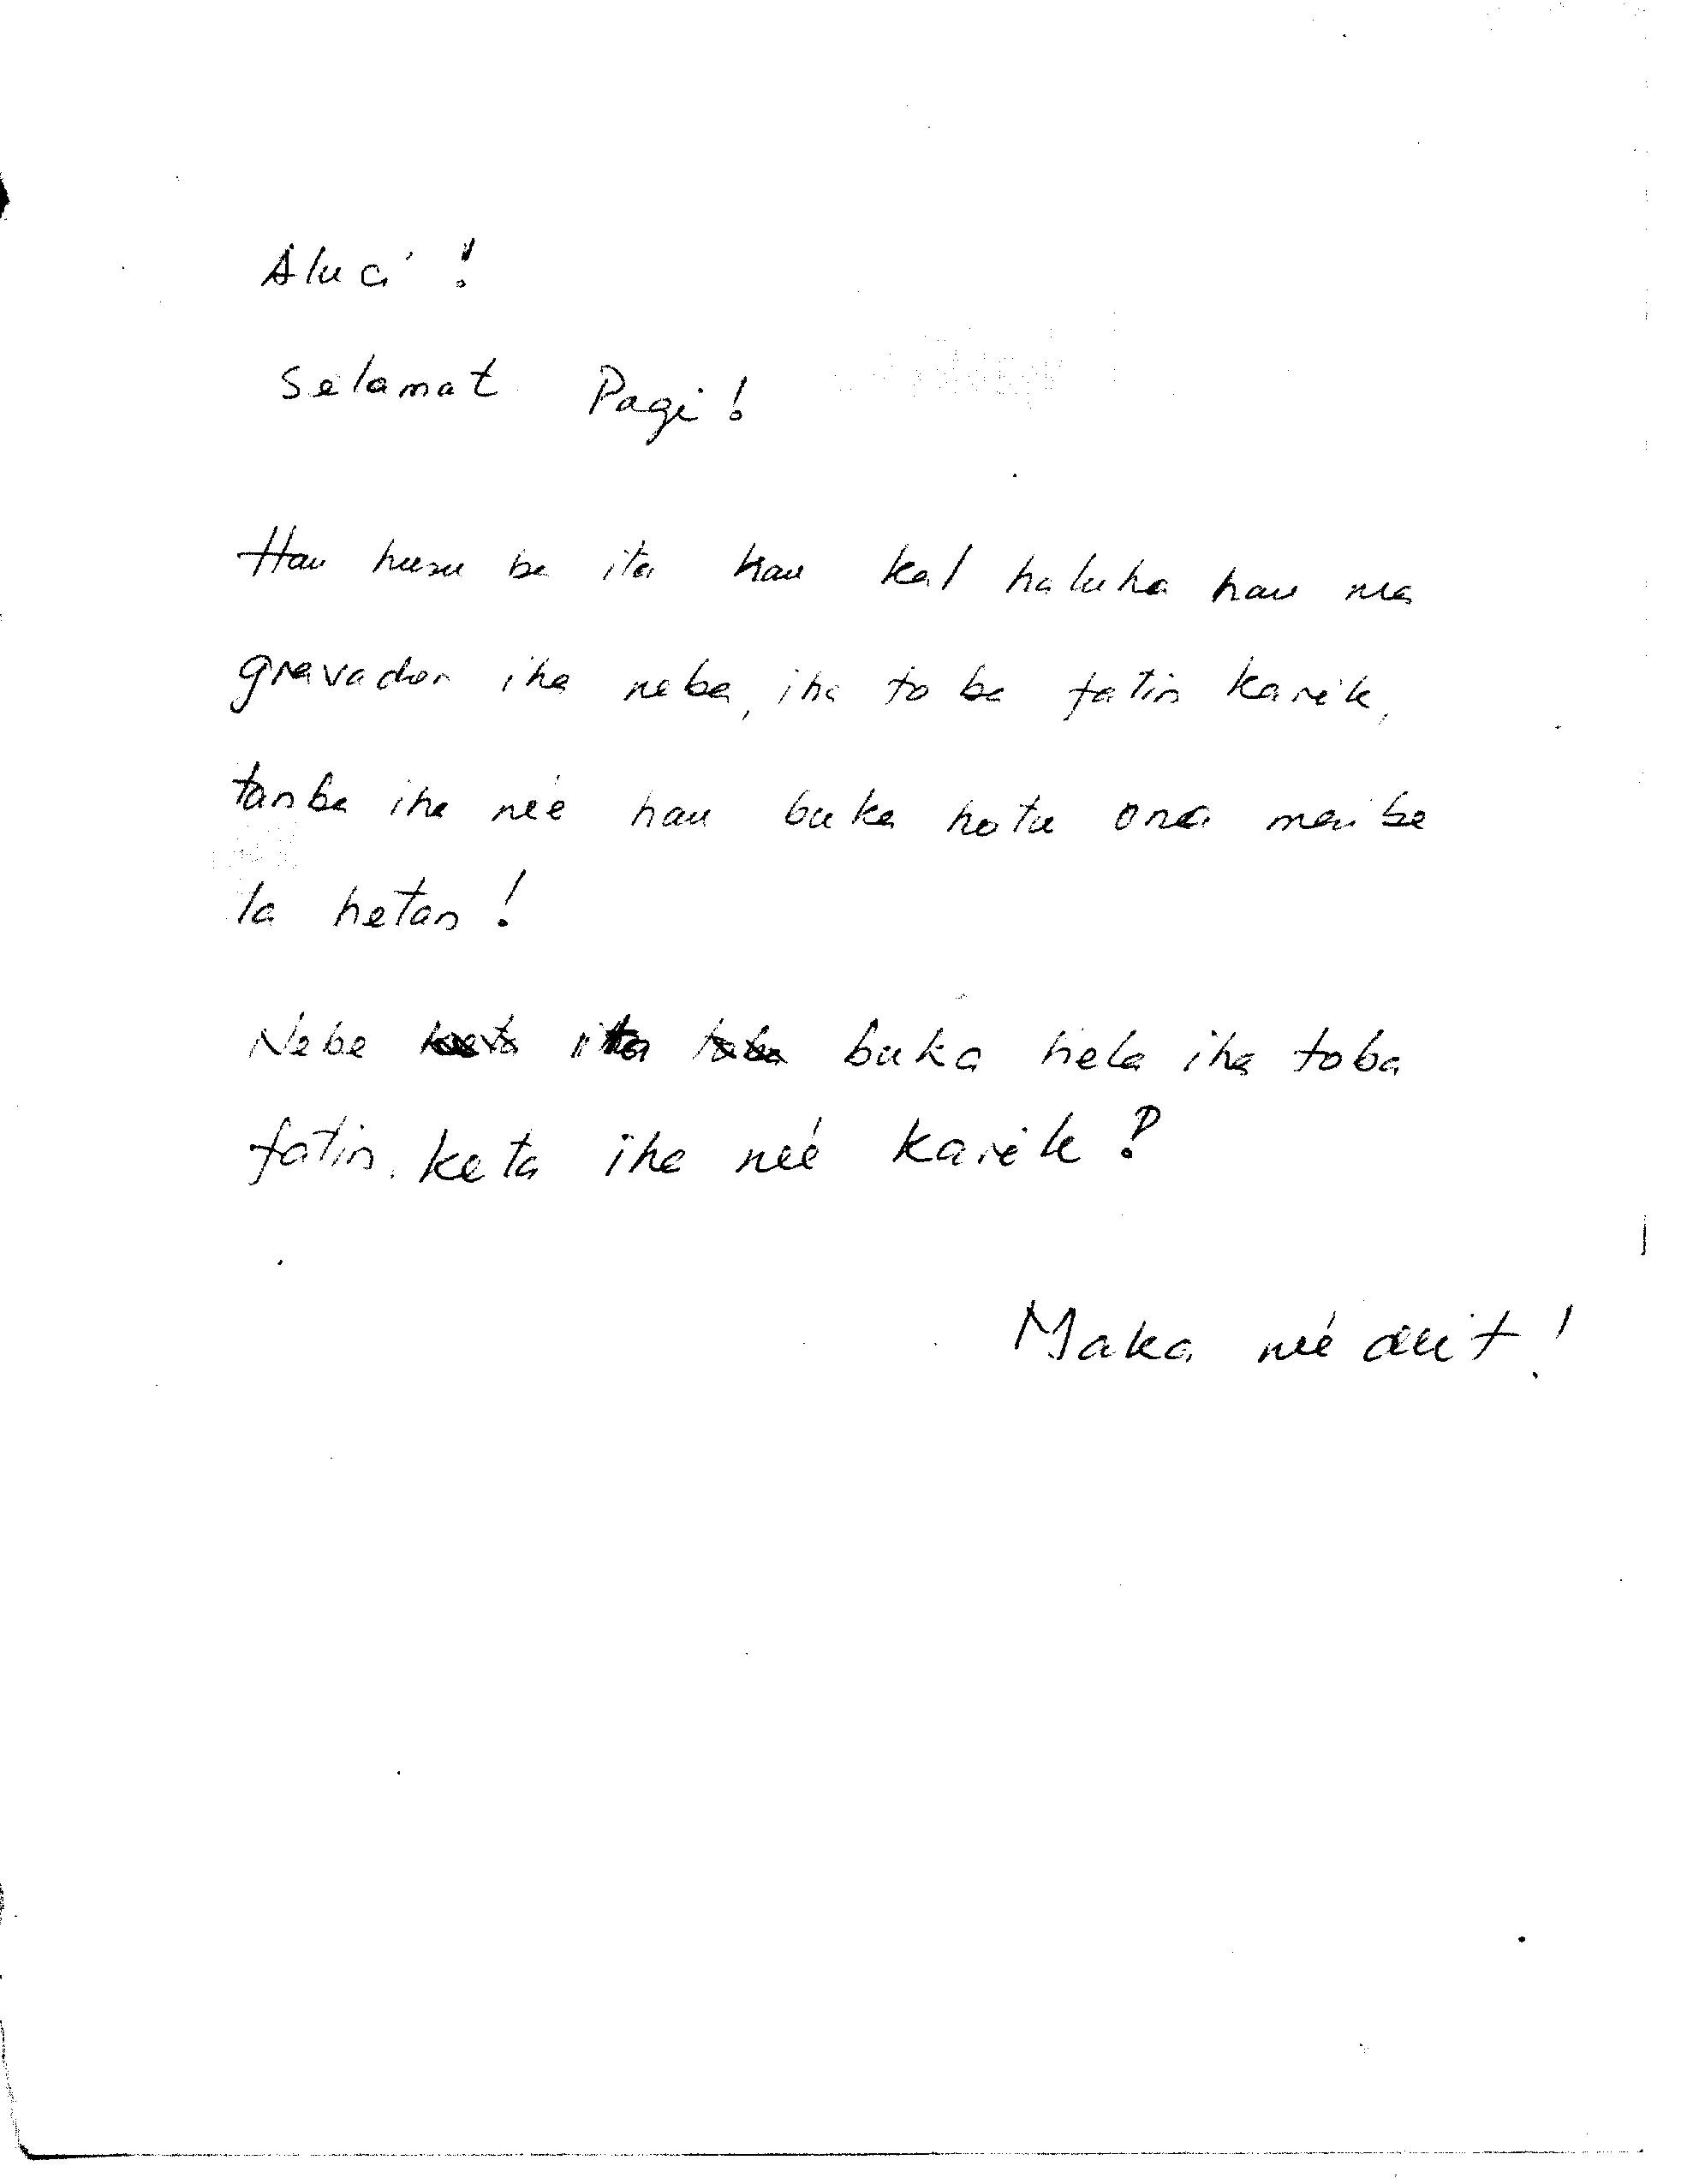 Aluci !
Selamat Pagi !
Hau husu ba ita hau kal haluha hau nia
gravador iha neba, iha toba fatin karik,
tanba iha né'e hau buka hotu ona maibe
la hetan !
Nebe ita buka hela iha toba
fatin. keta iha né'e karik ?
Maka né'e deit !